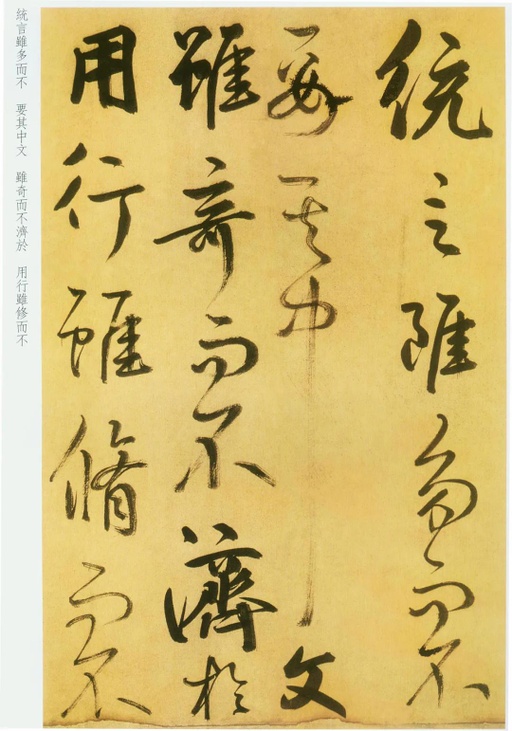 統言雖多而不
要其中文
雖奇而不濟於
用行雖脩而不
統言雖多而不 要其中文 雖奇而不濟於 用行雖修而不